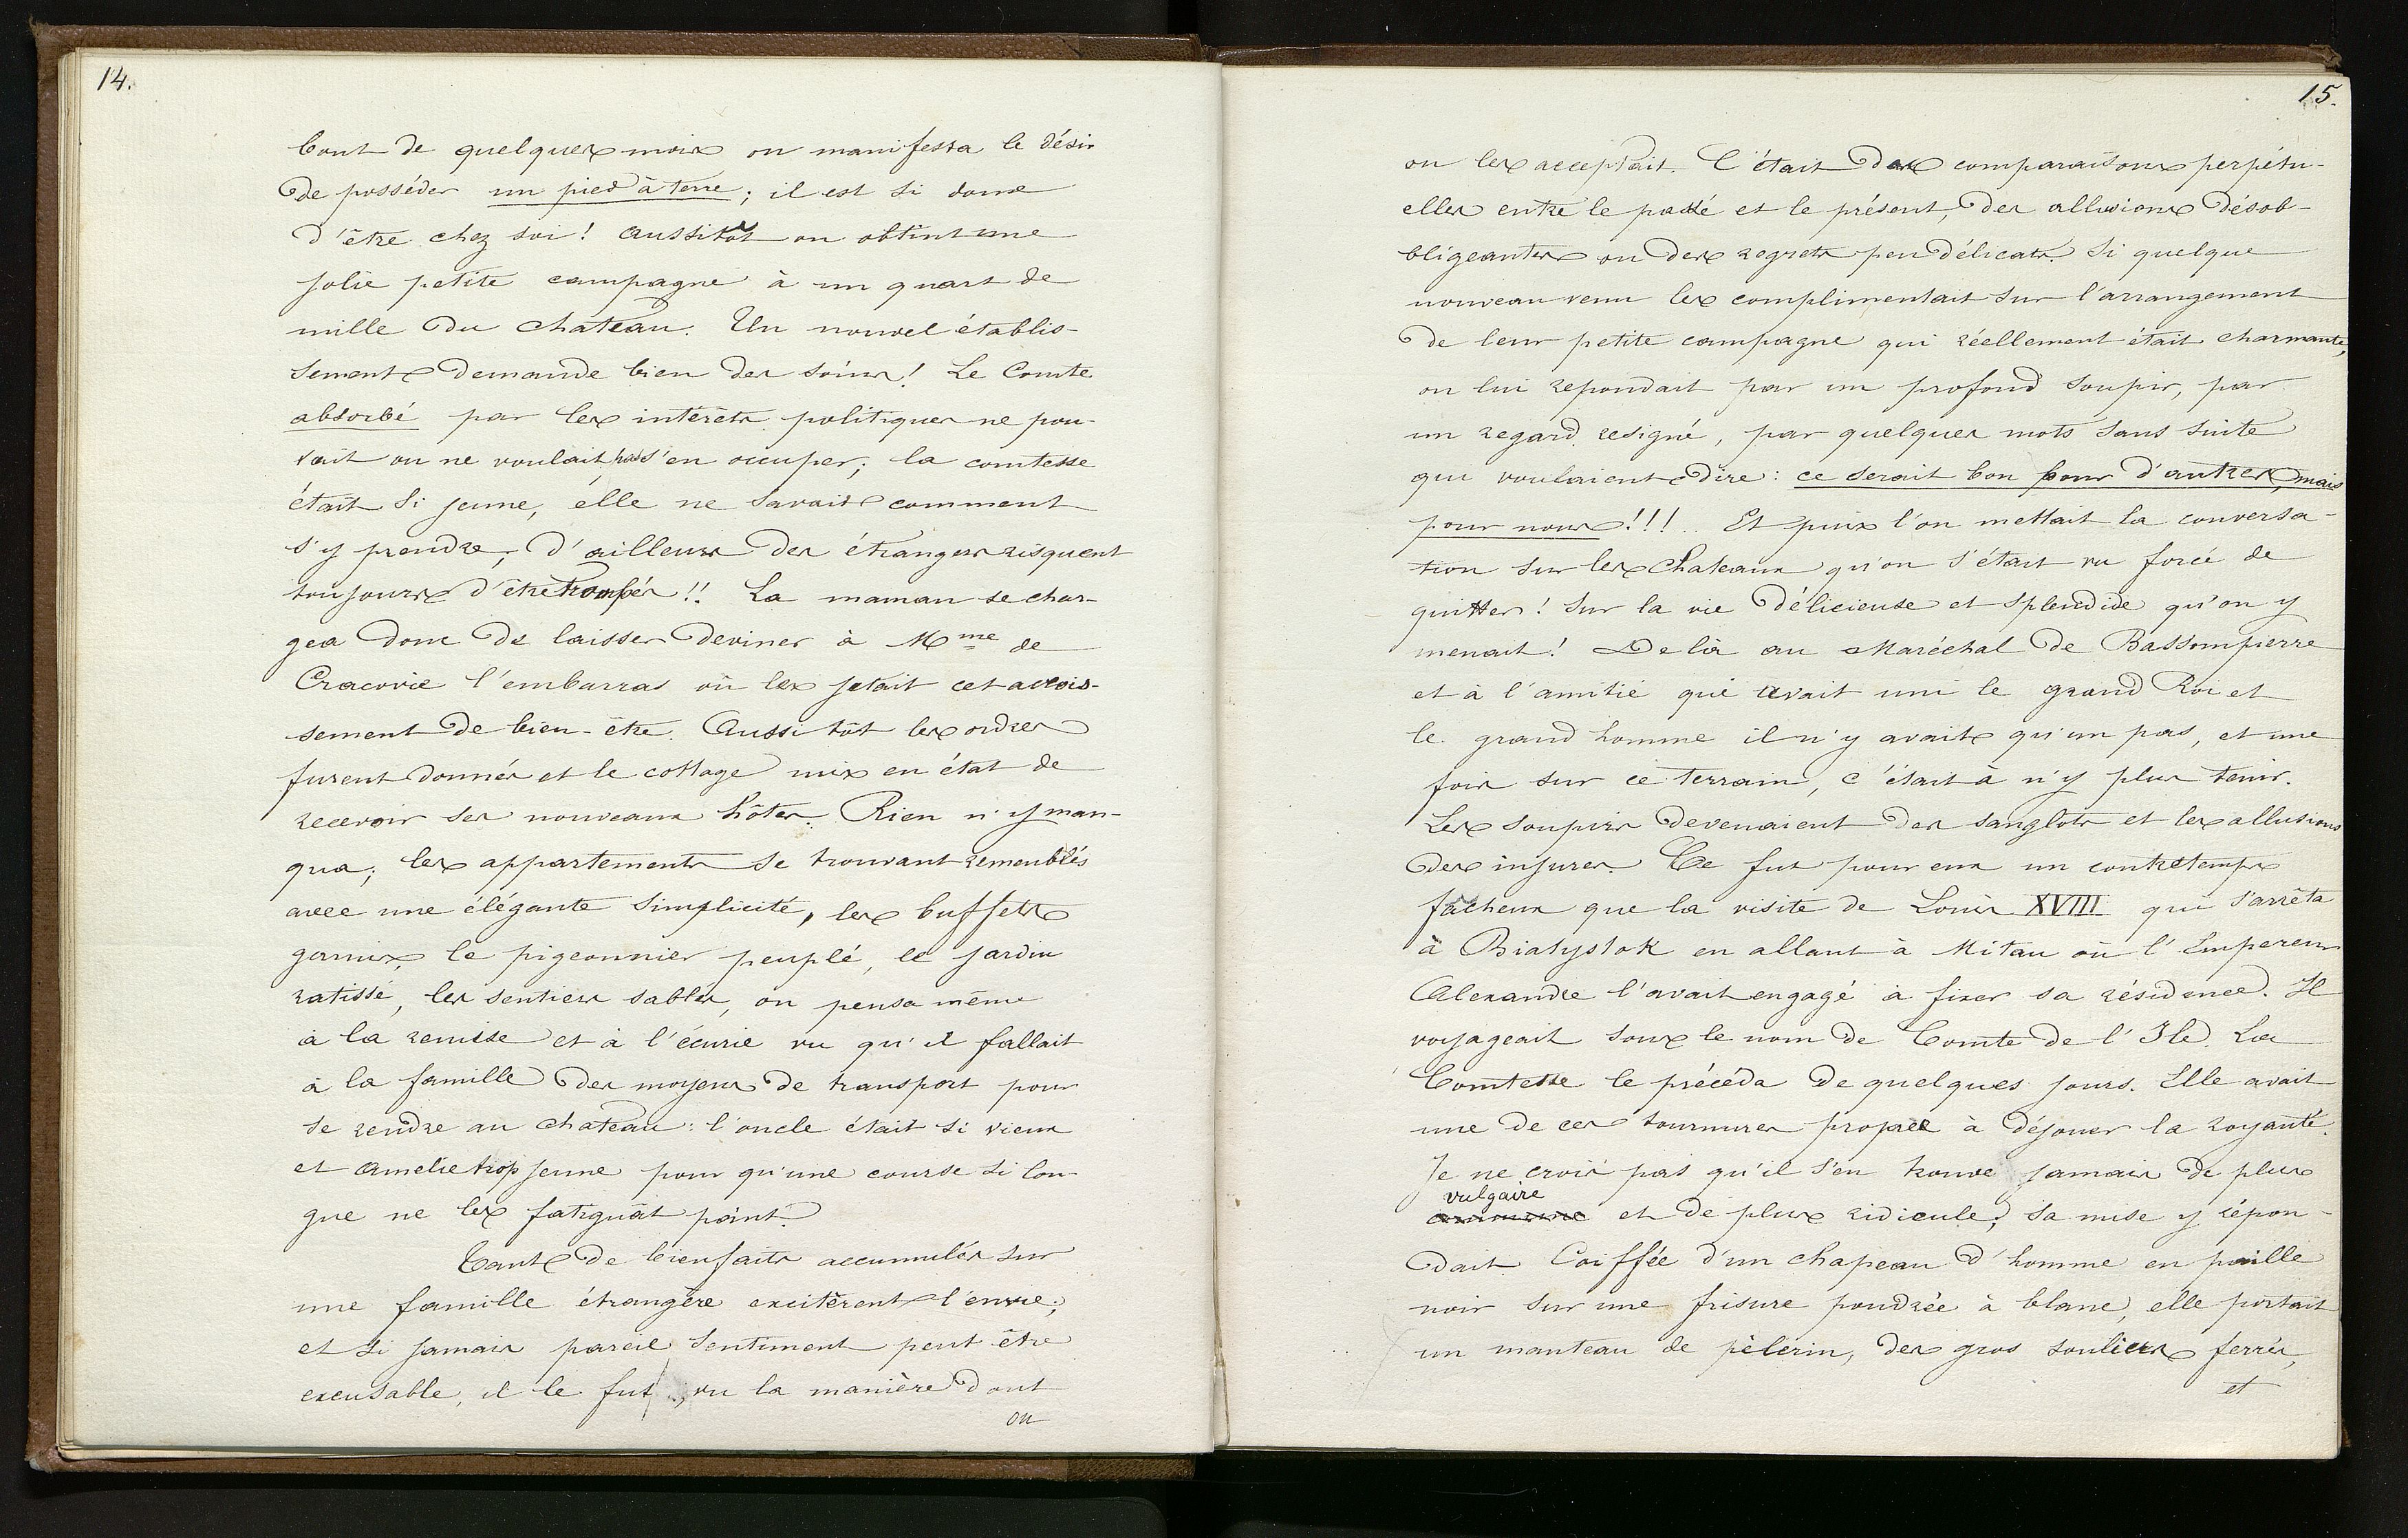 14.
bout de quelques mois on manifesta le désir
de posséder un pied à terre; il est si doux
d'être chez soi! Aussitôt on obtint une
jolie petite campagne à un quart de
mille du chateau. Un nouvel établis-
sement demande bien des soins! Le Comte
absorbé par les intérêts politiques ne pou-
vait ou ne voulait pas s'en occuper; la comtesse
était si jeune, elle ne savait comment
s'y prendre; d'ailleurs des étrangers risquent
toujours d'être trompés!! La maman se char-
gea donc de laisser deviner à Mme de
Cracovie l'embarras où les jetait cet accrois-
sement de bien-être. Aussitôt les ordres
furent donnés et le cottage mis en état de
recevoir ses nouveaux hôtes. Rien n'y man-
qua; les appartements se trouvant remeublés
avec une élégante simplicité, les buffets
garnis, le pigeonnier peuplé, le jardin
ratissé, les sentiers sablés, on pensa même
à la remise et à l'écurie vu qu'il fallait
à la famille des moyens de transport pour
se rendre au chateau: l'oncle était si vieux
et Amelie trop jeune pour qu'une course si lon-
gue ne les fatiguât point.
Tant de bienfaits accumulés sur
une famille étrangère excitèrent l'envie;
et si jamais pareil sentiment peut être
excusable, il le fut, vu la manière dont
on
15.
on les acceptait. C'était des comparaisons perpétu-
elles entre le passé et le présent, des allusions désob-
bligeantes ou des regrets peu délicats. Si quelque
nouveau venu les complimentait sur l'arrangement
de leur petite campagne qui réellement était charmante,
on lui repondait par un profond soupir, par
un regard resigné, par quelques mots sans suite
qui voulaient dire: ce serait bon pour d'autres, mais
pour nous!!! Et puis l'on mettait la conversa-
tion sur les Chateaux qu'on s'était vu forcé de
quitter! sur la vie délicieuse et splendide qu'on y
menait! De là au Maréchal de Bassompierre
et à l'amitié qui avait uni le grand Roi et
le grand homme il n'y avait qu'un pas, et une
fois sur ce terrain, c'était à n'y plus tenir.
Les soupirs devenaient des sanglots et les allusions
des injures. Ce fut pour eux un contretemps
fâcheux que la visite de Louis XVIII qui s'arrêta
à Bialystok en allant à Mitau où l'Empereur
Alexandre l'avait engagé à fixer sa résidence. Il
voyageait sous le nom de Comte de l'Ile. La
Comtesse le précéda de quelques jours. Elle avait
une de ces tournures propres à déjouer la royauté.
Je ne crois pas qu'il s'en trouve jamais de plus
vulgaire
et de plus ridicule; sa mise y répon-
dait. Coiffée d'un chapeau d'homme en paille
noir sur une frisure poudrée à blanc, elle portait
un manteau de pèlerin, des gros souliers ferrés,
et